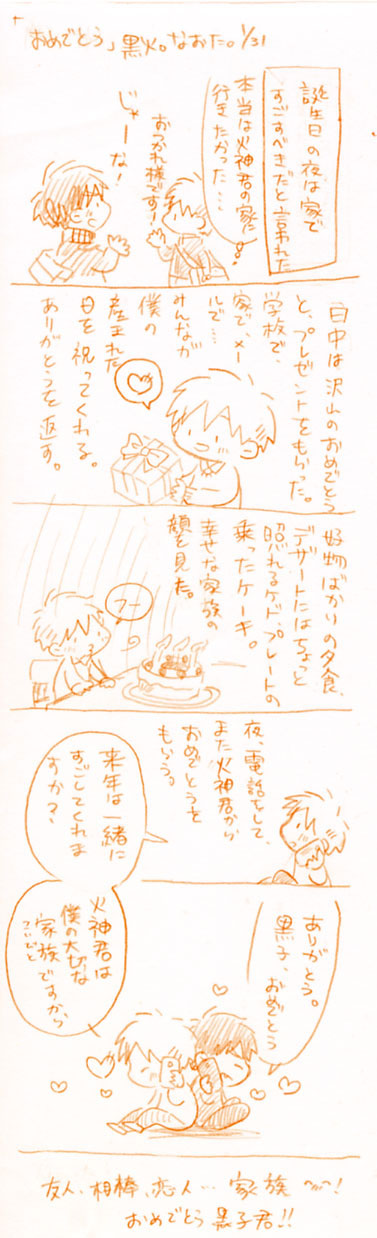 「おめでとう」黒火。なおた。1/31
誕生日の夜は家で
すごすべきだと言われた
本当は火神君の家に
行きたかった…。
おつかれ様です!
じゃーな!
日中は沢山のおめでとう
と、プレゼントをもらった。
学校で、
家で、メー
ルで…
みんなが
僕の
産まれた
日を祝ってくれる。
ありがとうを返す。
好物ばかりの夕食、
デザートにはちょっと
照れるケド、プレートの
乗ったケーキ。
幸せな家族の
顔を見た。
フー
夜、電話をして、
また火神君から
おめでとうを
もらう。
来年は一緒に
すごしてくれま
すか?
ありがとう。
黒子、おめでとう
火神君は
僕の大切な
家族ですから
友人、相棒、恋人…家族~~!
おめでとう黒子君!!